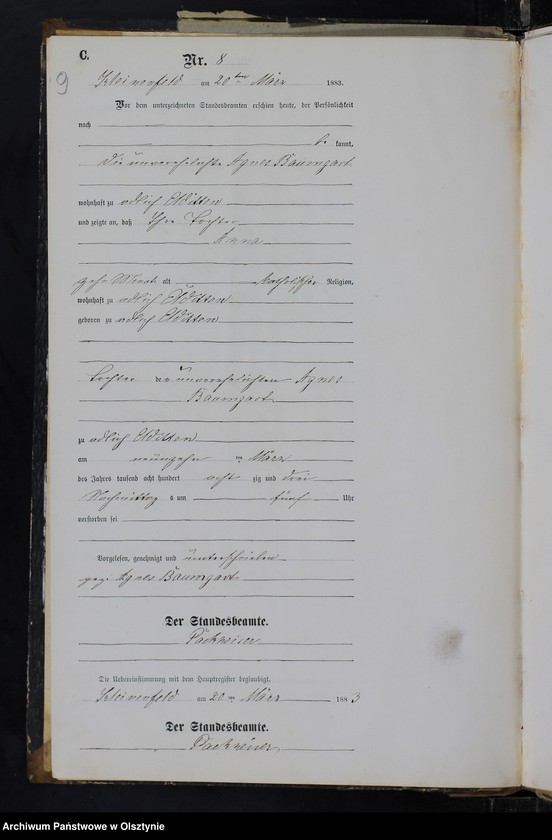 C.
Nr. 8
9
Kleinenfeld am 20ten März 1883.
Vor dem unterzeichneten Standesbeamten erschien heute, der Persönlichkeit
nach
be kannt,
die unverehelichte Agnes Baumgart
wohnhaft zu adlich Elditten
und zeigte an, daß Ihre Tochter
Anna
zehn Monat alt katholischer Religion,
wohnhaft zu adlich Elditten
geboren zu adlich Elditten
Tochter der unverehelichten Agnes
Baumgart
zu adlich Elditten
am neunzehn ten März
des Jahres tausend acht hundert acht zig und drei
Nachmittag s um fünf Uhr
verstorben sei
Vorgelesen, genehmigt und unterschrieben
gez. Agnes Baumgart
Der Standesbeamte.
Die Uebereinstimmung mit dem Hauptregister beglaubigt.
Kleinenfeld am 20ten März 1883
Der Standesbeamte.
Archiwum Państwowe w Olsztynie